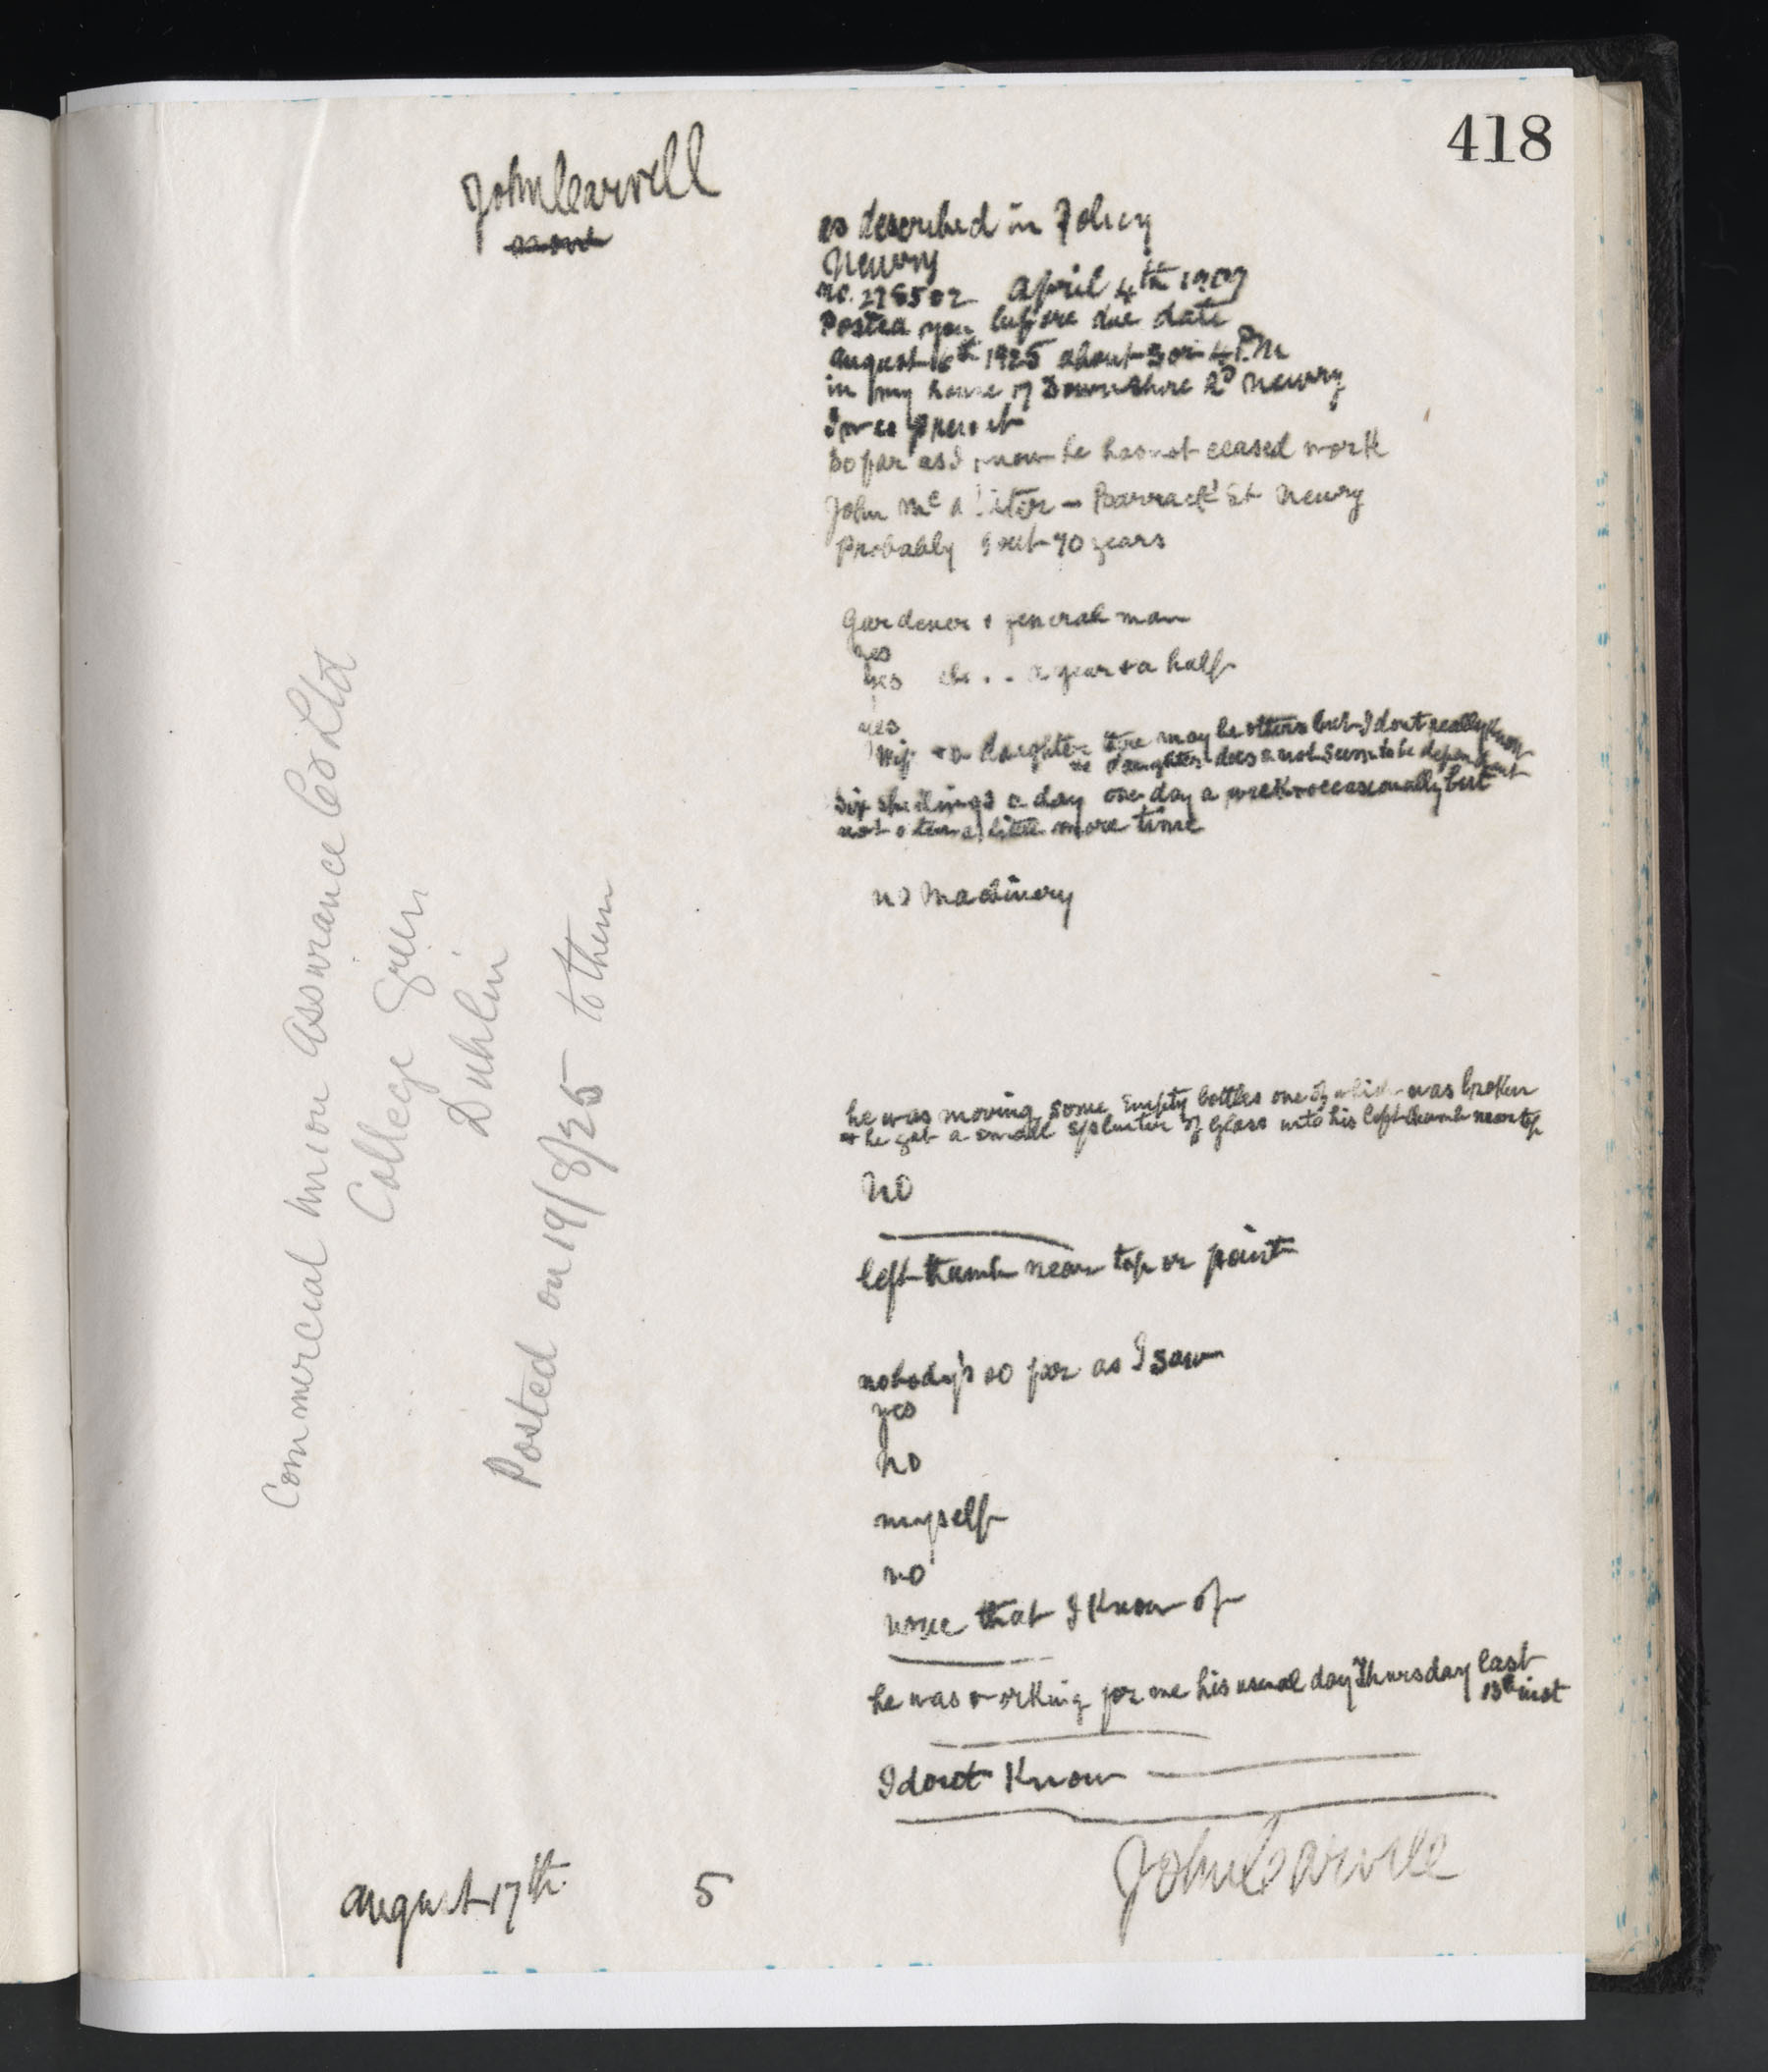 418
John Carvill
as described in Policy
Newry
no. 278502 April 4th 1907
Posted you before due date
august 6th 1925 about 3 or 4 P.M.
in my house 17 Downshire Rd Newry
I was present
So far as I know he has not ceased work
John Mc Ateer - Barrack St Newry
Probably about 70 years
Gardener & general man
yes
yes a year & a half
yes
Wife & a daughter there may be others but I dont really know
the daughter does not seem to be dependent
Six shillings a day one day a week & occasionally but
not often a little more time
no Machinery
he was moving some Empty bottles one of which was broken
& he got a small splinter of glass into his left thumb near top
No
left thumb near top or point
nobody's so far as I saw
yes
No
myself
no
none that I Know of
he was working for me his usual day Thursday last
13th inst
I dont Know
John Carvill
august 17th 5
Commercial Union Assurance Co Ltd
College Green
Dublin
Posted on 19/8/25 to them